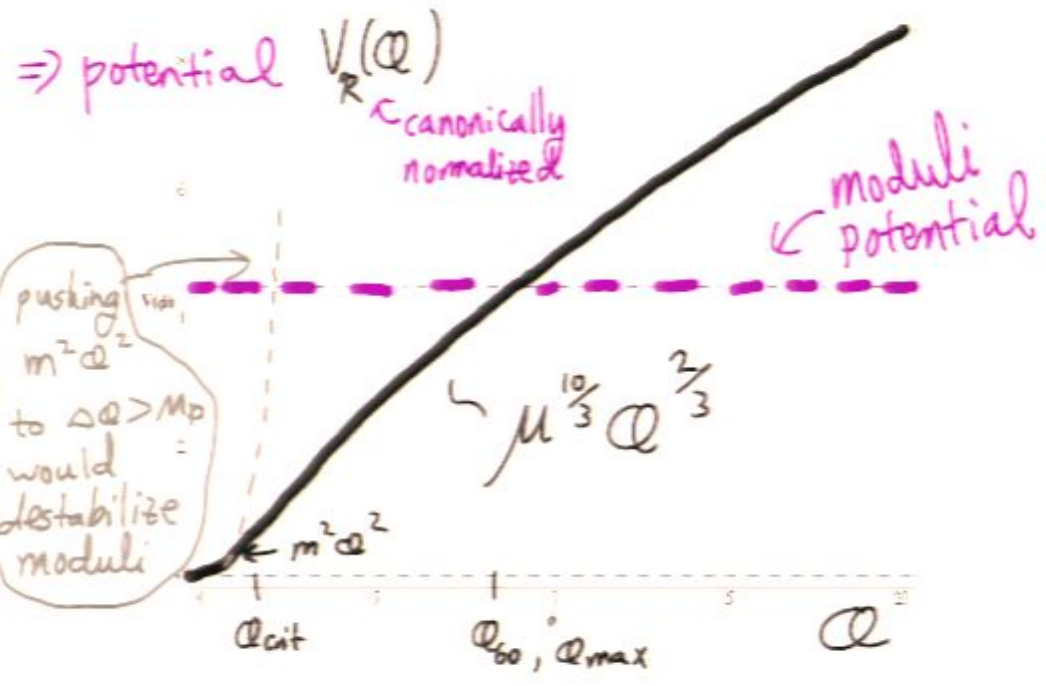 ⇒ potential V_R(Q)
canonically
normalized
moduli
potential
pushing
m²Q²
to ΔQ>M_p
would
destabilize
moduli
μ^{10/3} Q^{2/3}
m²Q²
Q_crit
Q_60, Q_max
Q
5
10